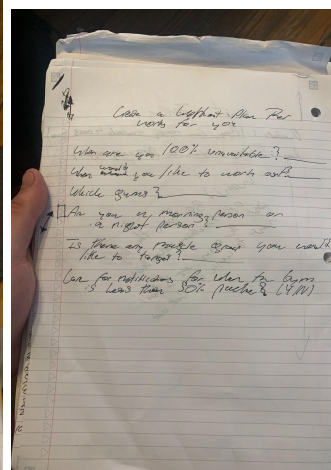 Create a Workout Plan that
works for you
When are you 100% unavailable?
When would you like to work out?
Which gyms?
Are you a morning person or
a night person?
Is there any muscle group you would
like to target?
for notifications for when the Gym
is less than 50% packed? (Y/N)